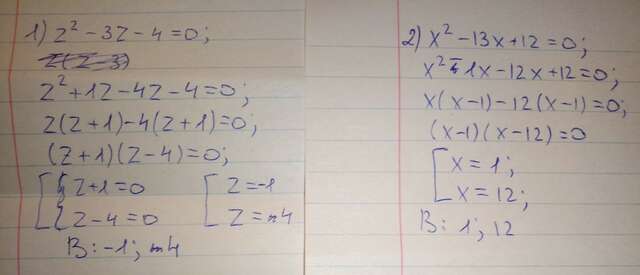 1) z² - 3z - 4 = 0;
z² + 1z - 4z - 4 = 0;
z(z + 1) - 4(z + 1) = 0;
(z + 1)(z - 4) = 0;
[ z + 1 = 0 [ z = -1
z - 4 = 0 z = 4
В: -1; 4
2) x² - 13x + 12 = 0;
x² - 1x - 12x + 12 = 0;
x(x - 1) - 12(x - 1) = 0;
(x - 1)(x - 12) = 0
[ x = 1;
x = 12;
В: 1; 12